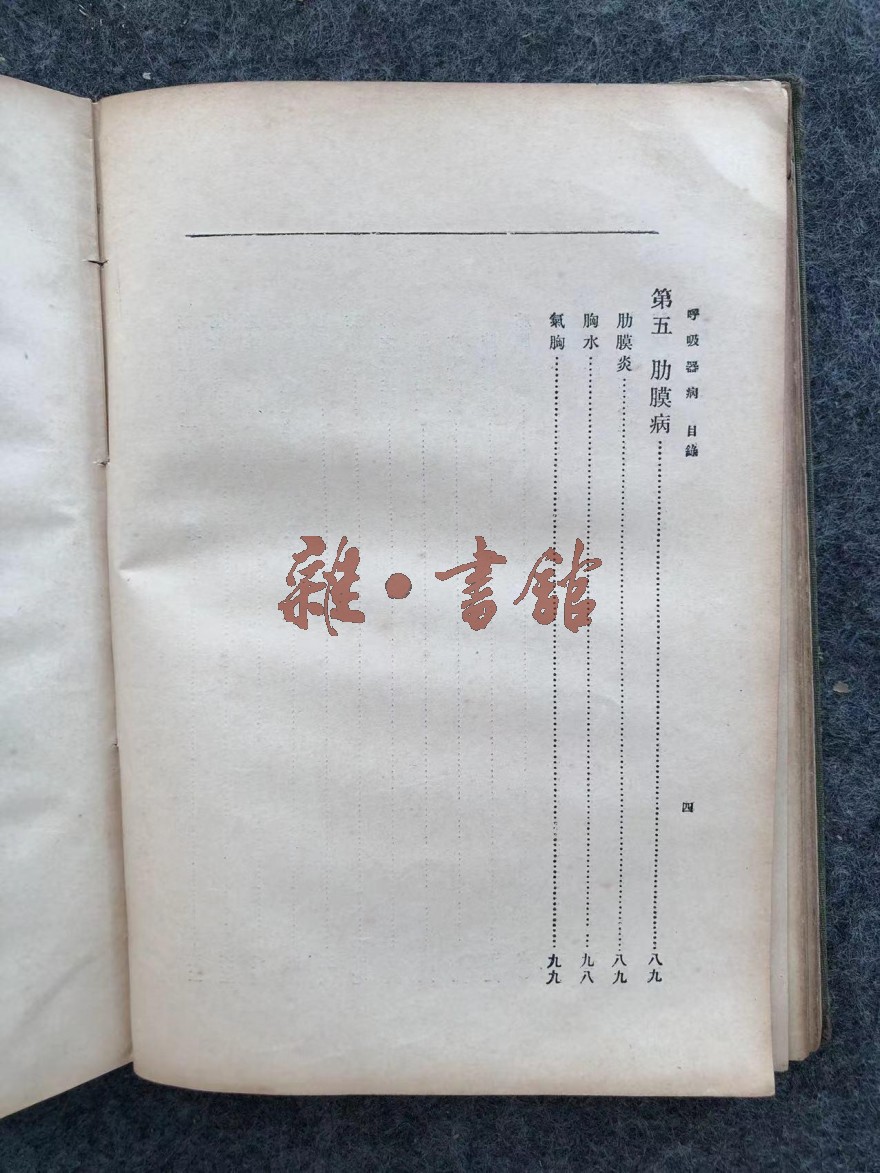 呼吸器病 目錄
四
第五 肋膜病………八九
肋膜炎………八九
胸水………九八
氣胸………九九
雜·書館